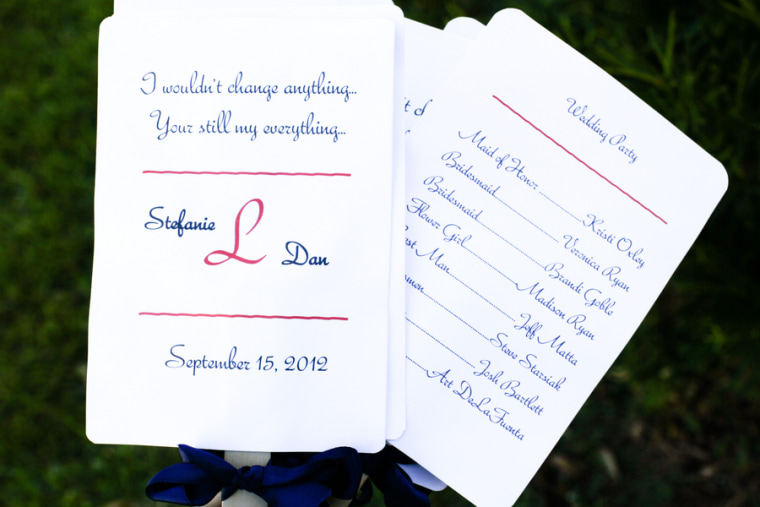 I wouldn't change anything...
Your still my everything...
Stefanie L Dan
September 15, 2012
Wedding Party
Maid of Honor Kristi Oxley
Bridesmaid Veronica Ryan
Bridesmaid Brandi Goble
Flower Girl Madison Ryan
Man Jeff Matta
Steve Starsiak
Josh Bartlett
Art DeLaFuenta